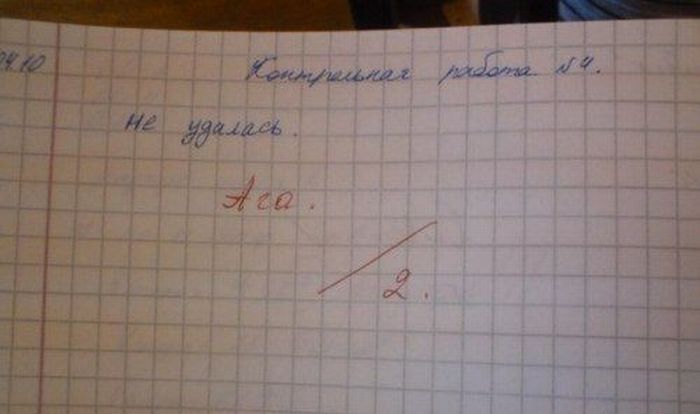 24.10
Контрольная работа №4.
не удалась.
Ага.
2.